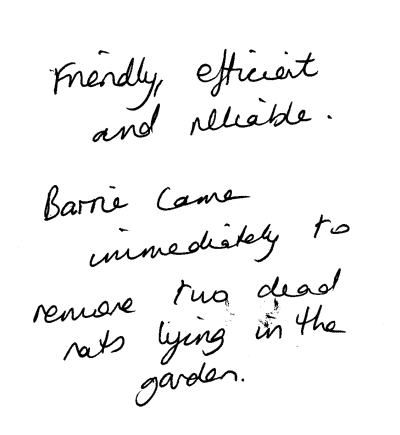 Friendly, efficient
and reliable.
Barrie came
immediately to
remove two dead
rats lying in the
garden.